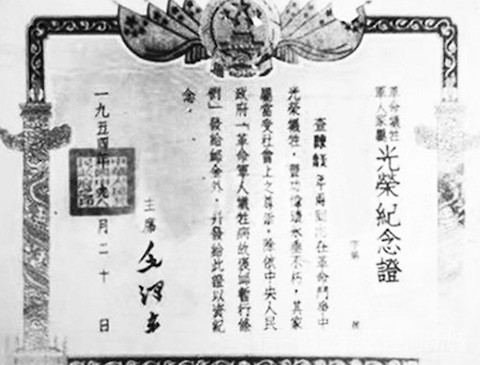 革命犧牲
軍人家屬
光榮紀念證
字第 號
查 同志在革命鬥爭中
光榮犧牲，豐功偉績永垂不朽，其家
屬當受社會上之尊崇。除依中央人民
政府「革命軍人犧牲病故褒卹暫行條
例」發給卹金外，并發給此證以資紀
念。
主席 毛澤東
一九五四年 月二十日